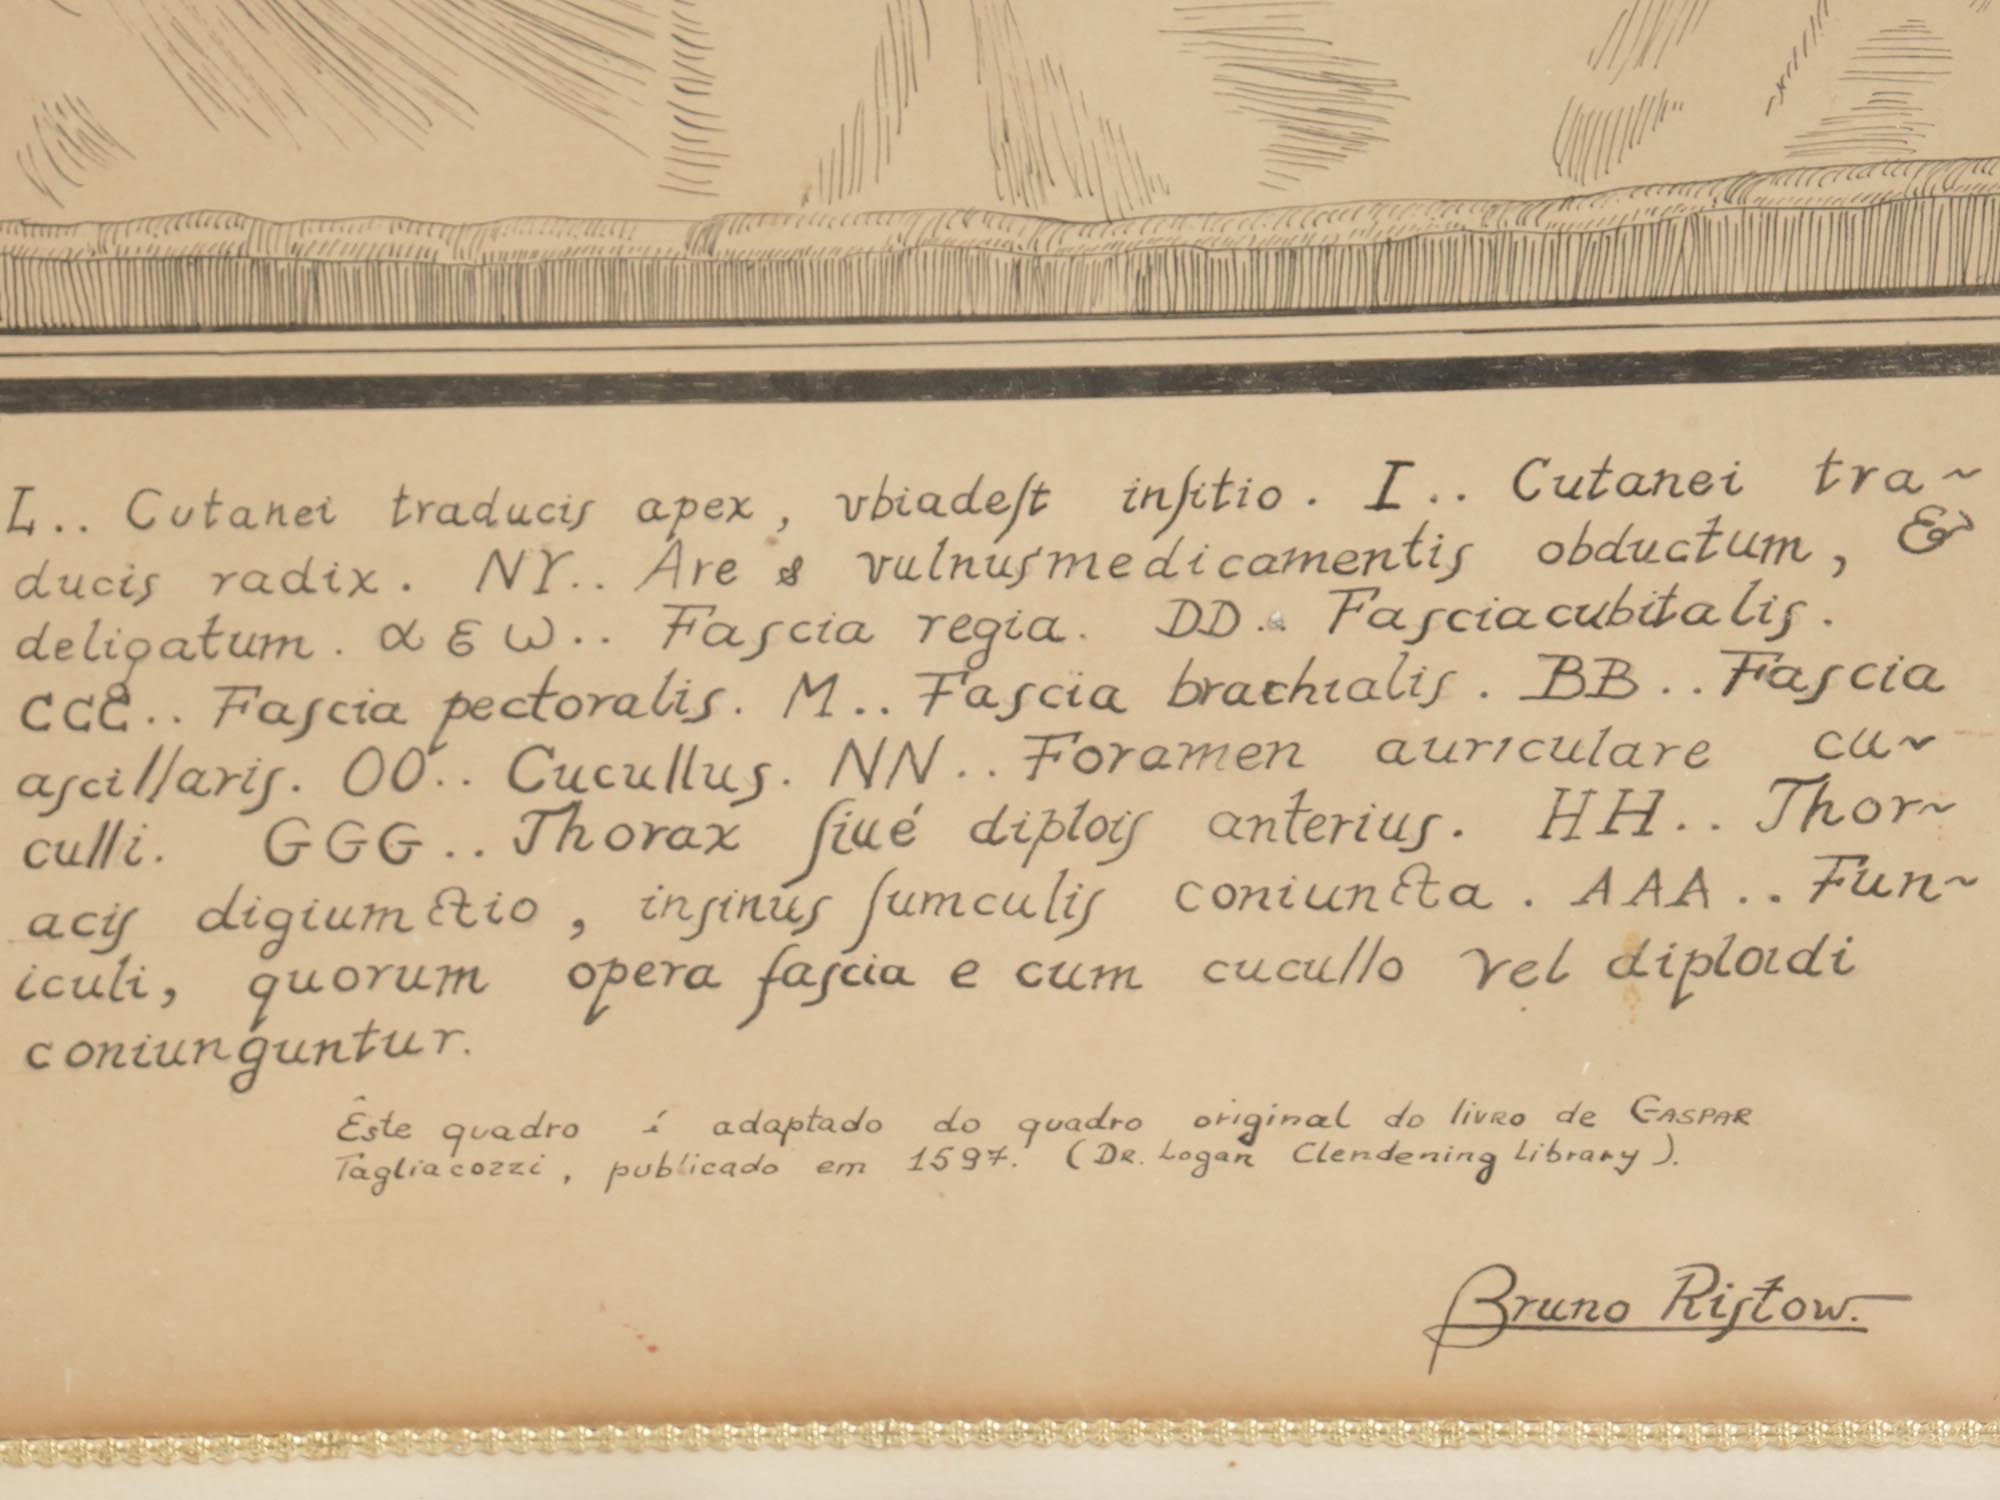 L.. Cutanei traducis apex, vbiadeſt inſitio. I.. Cutanei tra~
ducis radix. NY.. Are & vulnusmedicamentis obductum, &
deligatum. α ε ω.. Fascia regia. DD.. Fasciacubitalis.
CCC.. Fascia pectoralis. M.. Fascia brachialis. BB.. Fascia
ascillaris. OO.. Cucullus. NN.. Foramen auriculare cu~
culli. GGG.. Thorax ſiué diplois anterius. HH.. Thor~
acis digiumctio, insinus ſumculis coniuncta. AAA.. Fun~
iculi, quorum opera fascia e cum cucullo vel diploidi
coniunguntur.
Êste quadro é adaptado do quadro original do livro de GASPAR
Tagliacozzi, publicado em 1597. (DR. Logan Clendening Library).
Bruno Ristow.